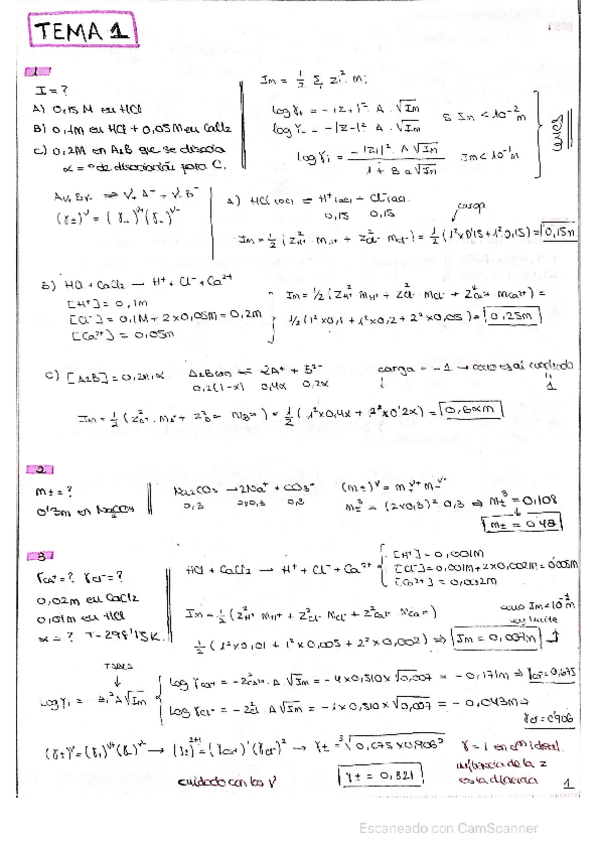 TEMA 1
1
I = ?
A) 0,15 M en HCl
B) 0,1M en HCl + 0,05M en CaCl2
C) 0,2M en A2B que se disocia
α = º de disociación para C.
Im = 1/2 Σ zi² mi
log γ+ = -|z+|² A √Im
log γ- = -|z-|² A √Im
si Im < 10⁻² m
log γi = -|zi|² A √Im / 1 + B a √Im
Im < 10⁻¹ m
A) HCl (ac) ⇌ H⁺(ac) + Cl⁻(ac)
0,15 0,15
carga
Im = 1/2 (Z²H⁺ mH⁺ + Z²Cl⁻ mCl⁻) = 1/2 (1²x0,15 + 1²0,15) = 0,15m
B) HCl + CaCl2 → H⁺ + Cl⁻ + Ca²⁺
[H⁺] = 0,1m
[Cl⁻] = 0,1M + 2x0,05M = 0,2m
[Ca²⁺] = 0,05m
Im = 1/2 (Z²H⁺ mH⁺ + Z²Cl⁻ mCl⁻ + Z²Ca²⁺ mCa²⁺) =
1/2 (1²x0,1 + 1²x0,2 + 2²x0,05) = 0,25m
C) [A2B] = 0,2m, α
A2B(ac) ⇌ 2A⁺ + B²⁻
0,2(1-α) 0,4α 0,2α
carga = -1 → como está cuadrado
1
Im = 1/2 (Z²A⁺ mA⁺ + Z²B²⁻ mB²⁻) = 1/2 (1²x0,4α + 2²x0'2α) = 0,6αm
2
m± = ?
0'3m en Na2CO3
Na2CO3 → 2Na⁺ + CO3²⁻
0,3 2x0,3 0,3
(m±)^ν = m+^ν+ m-^ν-
m±³ = (2x0,3)² 0,3 ⇒ m±³ = 0,108
m± = 0,48
3
γCa⁺ = ? γCl⁻ = ?
0,02m en CaCl2
0,01m en HCl
α = ? T = 298'15K.
HCl + CaCl2 → H⁺ + Cl⁻ + Ca²⁺
[H⁺] = 0,001M
[Cl⁻] = 0,001m + 2x0,002m = 0'005m
[Ca²⁺] = 0,002m
Im = 1/2 (Z²H⁺ mH⁺ + Z²Cl⁻ mCl⁻ + Z²Ca²⁺ mCa²⁺)
1/2 (1²x0,01 + 1²x0,005 + 2²x0,002) ⇒ Im = 0,007m
como Im < 10⁻² m
ley límite
Tabla
log γi = -zi² A √Im
log γCa²⁺ = -Z²Ca²⁺ A √Im = -4x0,510x√0,007 = -0,171m ⇒ γCa²⁺ = 0,675
log γCl⁻ = -Z²Cl⁻ A √Im = -1x0,510x√0,007 = -0,043m ⇒
γCl⁻ = 0'906
(γ±)^ν = (γ+)^ν+ (γ-)^ν- → (γ±)²⁺¹ = (γCa²⁺)¹ (γCl⁻)² → γ± = ³√0,675x0,906²
cuidado con los ν
γ± = 0,821
γ = 1 en dn ideal.
influencia de la z
es la diferencia
1
Escaneado con CamScanner